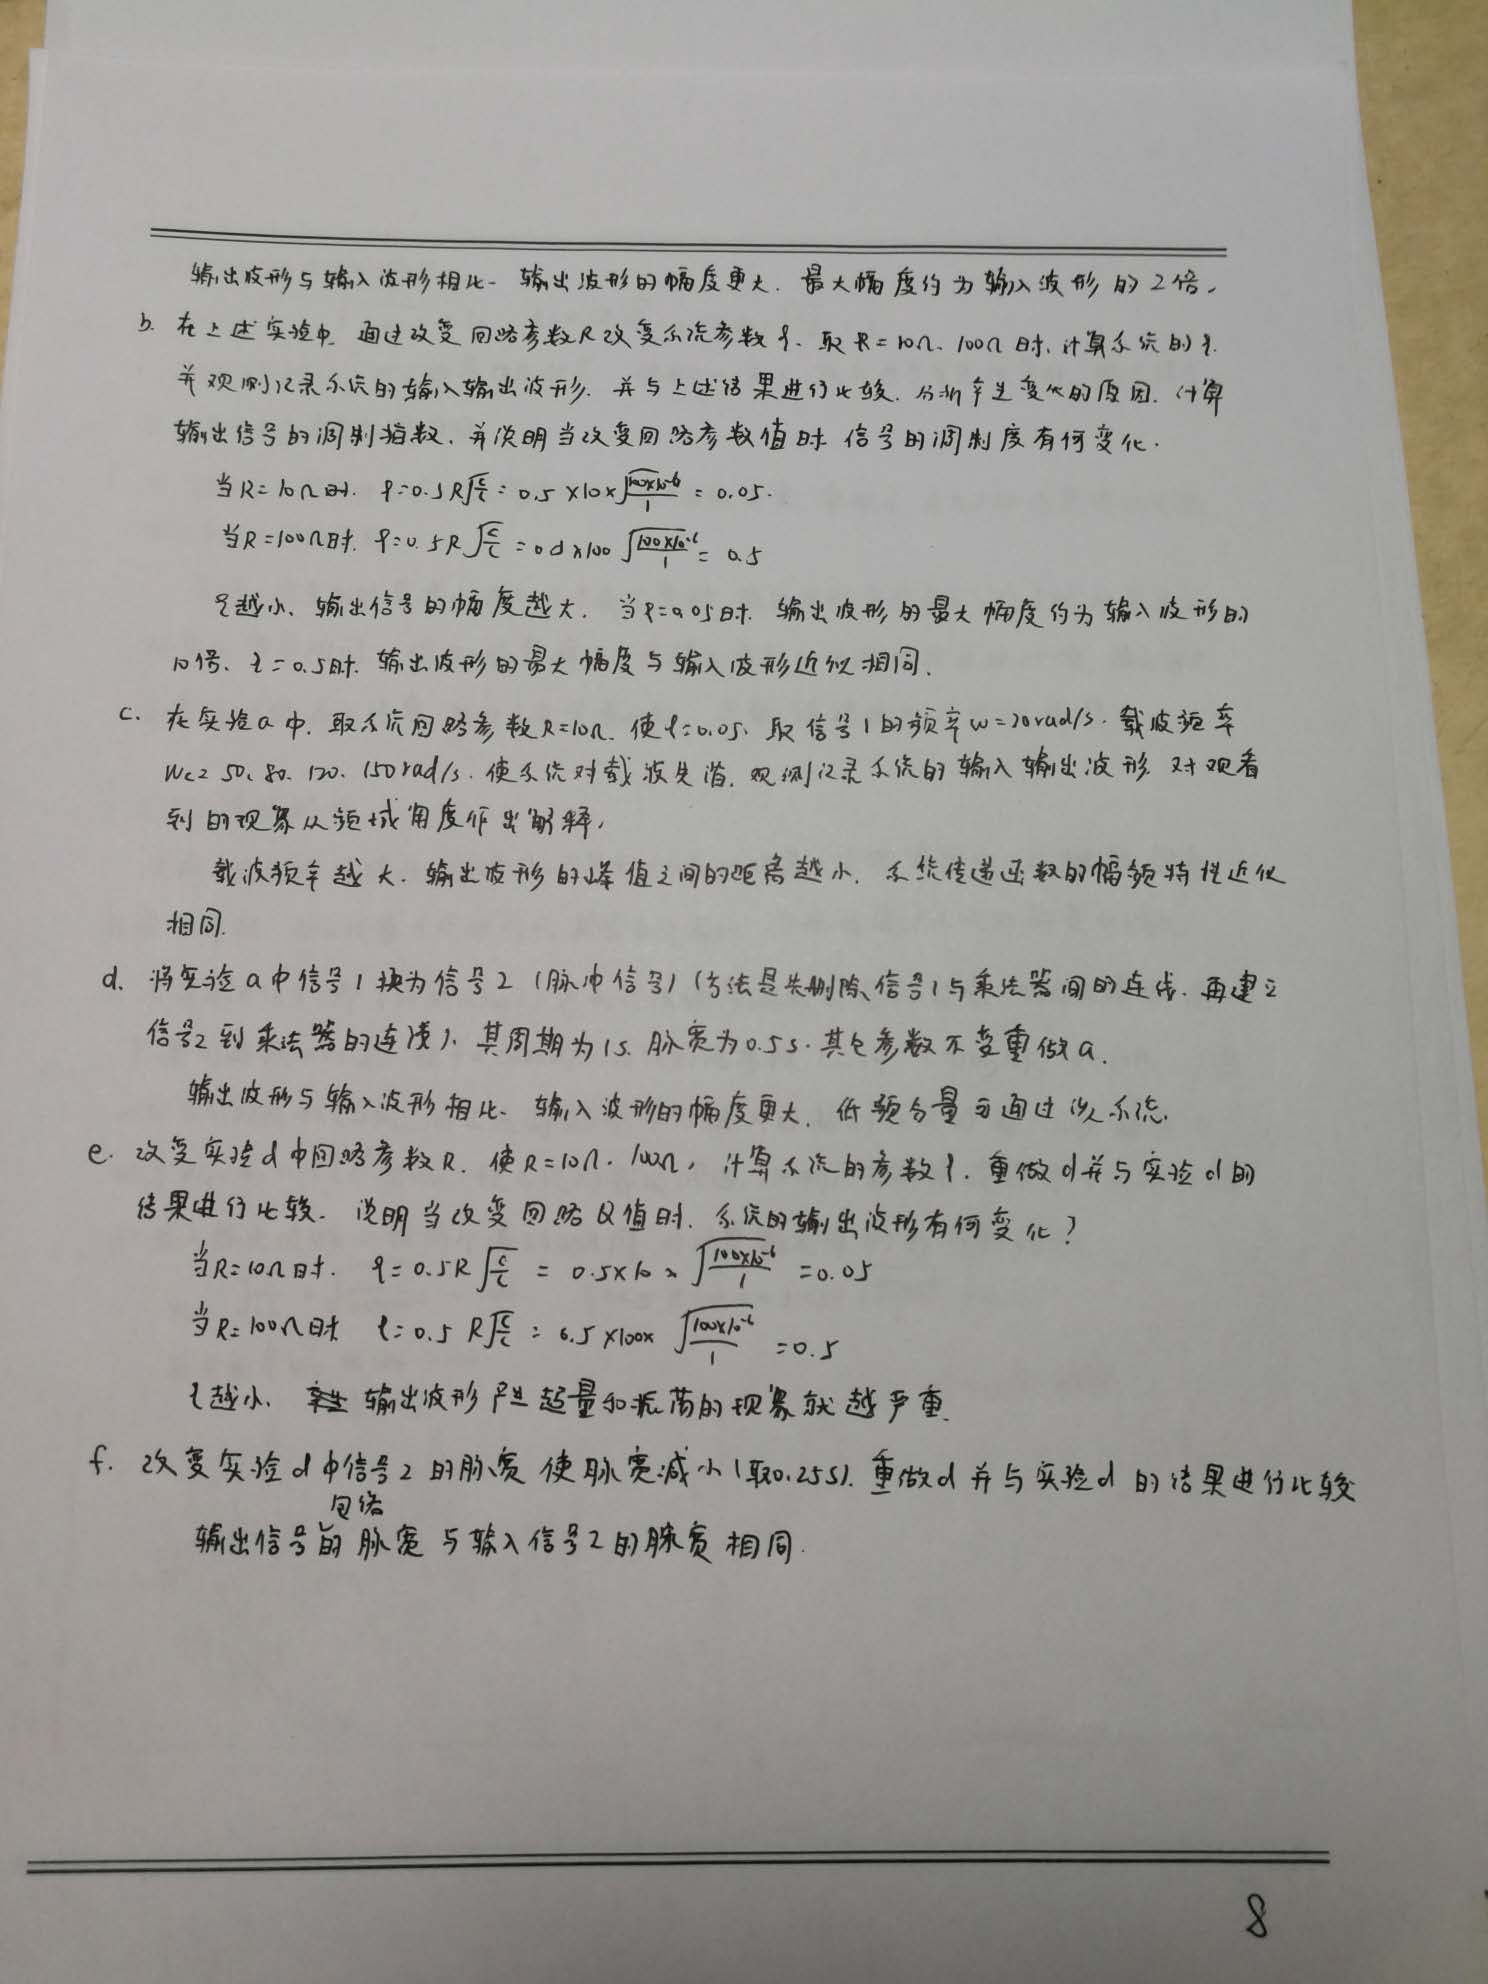 输出波形与输入波形相比、输出波形的幅度更大.最大幅度约为输入波形的2倍.
b. 在上述实验中.通过改变回路参数R改变系统参数ξ.取R=10Ω、100Ω时,计算系统的ξ.
并观测记录系统的输入输出波形.并与上述结果进行比较.分析产生变化的原因.计算
输出信号的调制指数.并说明当改变回路参数值时 信号的调制度有何变化.
当R=10Ω时. ξ=0.5R√(C/L)=0.5×10×√(100×10⁻⁶/1)=0.05.
当R=100Ω时. ξ=0.5R√(C/L)=0.5×100√(100×10⁻⁶/1)=0.5
ξ越小、输出信号的幅度越大.当ξ=0.05时.输出波形的最大幅度约为输入波形的
10倍、ξ=0.5时.输出波形的最大幅度与输入波形近似相同.
c. 在实验a中.取系统回路参数R=10Ω.使ξ=0.05.取信号1的频率w=20rad/s.载波频率
Wc=50、80、120、150rad/s.使系统对载波失谐.观测记录系统的输入输出波形 对观看
到的现象从频域角度作出解释,
载波频率越大.输出波形的峰值之间的距离越小.系统传递函数的幅频特性近似
相同.
d. 将实验a中信号1换为信号2(脉冲信号)(方法是先删除信号1与乘法器间的连线.再建立
信号2到乘法器的连接).其周期为1s.脉宽为0.5s.其它参数不变重做a.
输出波形与输入波形相比、输入波形的幅度更大.低频分量可通过以系统.
e. 改变实验d中回路参数R.使R=10Ω.100Ω,计算系统的参数ξ.重做d并与实验d的
结果进行比较.说明当改变回路Q值时.系统的输出波形有何变化?
当R=10Ω时. ξ=0.5R√(C/L)=0.5×10×√(100×10⁻⁶/1)=0.05
当R=100Ω时 ξ=0.5R√(C/L)=0.5×100×√(100×10⁻⁶/1)=0.5
ξ越小、输出波形产生超量和振荡的现象就越严重.
f. 改变实验d中信号2的脉宽 使脉宽减小(取0.25s).重做d并与实验d的结果进行比较
输出信号包络的脉宽与输入信号2的脉宽相同.
8